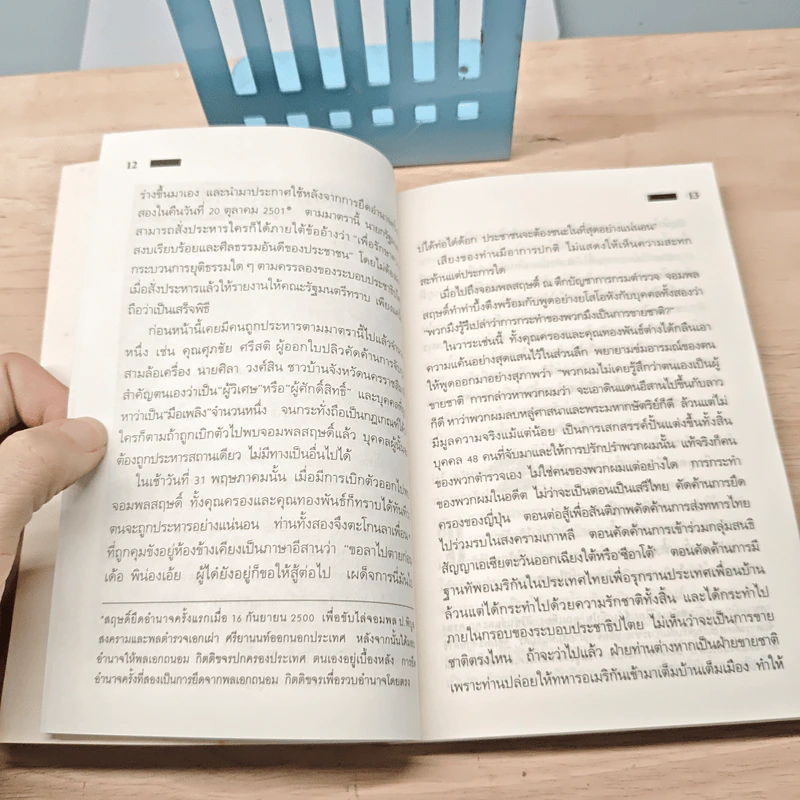 12
ร่างขึ้นมาเอง และนำมาประกาศใช้หลังจากการยึดอำนาจ
สองในคืนวันที่ 20 ตุลาคม 2501* ตามมาตรานี้
สามารถสั่งประหารใครก็ได้ภายใต้ข้ออ้างว่า "เพื่อรักษา
สงบเรียบร้อยและศีลธรรมอันดีของประชาชน" โดยไม่ต้อง
กระบวนการยุติธรรมใด ๆ ตามครรลองของระบอบประชาธิปไตย
เมื่อสั่งประหารแล้วให้รายงานให้คณะรัฐมนตรีทราบ
ถือว่าเป็นเสร็จพิธี
ก่อนหน้านี้เคยมีคนถูกประหารตามมาตรานี้ไปแล้ว
หนึ่ง เช่น คุณศุภชัย ศรีสติ ผู้ออกใบปลิวคัดค้านการ
สามล้อเครื่อง นายศิลา วงศ์สิน ชาวบ้านจังหวัดนครราชสีมา
สำคัญตนเองว่าเป็น"ผู้วิเศษ"หรือ"ผู้ศักดิ์สิทธิ์" และบุคคล
หาว่าเป็น"มือเพลิง"จำนวนหนึ่ง จนกระทั่งถือเป็นกฎเกณฑ์
ใครก็ตามถ้าถูกเบิกตัวไปพบจอมพลสฤษดิ์แล้ว บุคคลผู้นั้น
ต้องถูกประหารสถานเดียว ไม่มีทางเป็นอื่นไปได้
ในเช้าวันที่ 31 พฤษภาคมนั้น เมื่อมีการเบิกตัวออกไป
จอมพลสฤษดิ์ ทั้งคุณครองและคุณทองพันธ์ก็ทราบได้ทันที
ตนจะถูกประหารอย่างแน่นอน ท่านทั้งสองจึงตะโกนลาเพื่อน
ที่ถูกคุมขังอยู่ห้องข้างเคียงเป็นภาษาอีสานว่า "ขอลาไปตายก่อน
เด้อ พี่น่องเอ้ย ผู้ได๋ยังอยู่ก็ขอให้สู้ต่อไป เผด็จการนี้มัน
*สฤษดิ์ยึดอำนาจครั้งแรกเมื่อ 16 กันยายน 2500 เพื่อขับไล่จอมพล ป.
สงครามและพลตำรวจเอกเผ่า ศรียานนท์ออกนอกประเทศ หลังจากนั้น
อำนาจให้พลเอกถนอม กิตติขจรปกครองประเทศ ตนเองอยู่เบื้องหลัง การยึด
อำนาจครั้งที่สองเป็นการยึดจากพลเอกถนอม กิตติขจรเพื่อรวบอำนาจโดยตรง
13
ปได้ท่อไต๋ดอก ประชาชนจะต้องชนะในที่สุดอย่างแน่นอน"
เสียงของท่านมีอาการปกติ ไม่แสดงให้เห็นความสะทก
สะท้านแต่ประการใด
เมื่อไปถึงจอมพลสฤษดิ์ ณ ตึกบัญชาการกรมตำรวจ จอมพล
สฤษดิ์ทำท่าบึ้งตึงพร้อมกับพูดอย่างยโสโอหังกับบุคคลทั้งสองว่า
"พวกมึงรู้รึเปล่าว่าการกระทำของพวกมึงเป็นการขายชาติ?"
ในวาระเช่นนี้ ทั้งคุณครองและคุณทองพันธ์ต่างได้กลืนเอา
ความแค้นอย่างสุดแสนไว้ในส่วนลึก พยายามข่มอารมณ์ของตน
ให้พูดออกมาอย่างสุภาพว่า "พวกผมไม่เคยรู้สึกว่าตนเองเป็นผู้
ขายชาติ การกล่าวหาพวกผมว่า จะเอาดินแดนอีสานไปขึ้นกับลาว
ก็ดี หาว่าพวกผมลบหลู่ศาสนาและพระมหากษัตริย์ก็ดี ล้วนแต่ไม่
มีมูลความจริงแม้แต่น้อย เป็นการเสกสรรค์ปั้นแต่งขึ้นทั้งสิ้น
บุคคล 48 คนที่จับมาและให้การปรักปรำพวกผมนั้น แท้จริงก็คน
ของพวกตำรวจเอง ไม่ใช่คนของพวกผมแต่อย่างใด การกระทำ
ของพวกผมในอดีต ไม่ว่าจะเป็นตอนเป็นเสรีไทย คัดค้านการยึด
ครองของญี่ปุ่น ตอนต่อสู้เพื่อสันติภาพคัดค้านการส่งทหารไทย
ไปร่วมรบในสงครามเกาหลี ตอนคัดค้านการเข้าร่วมกลุ่มสนธิ
สัญญาเอเชียตะวันออกเฉียงใต้หรือ'ซีอาโต้' ตอนคัดค้านการมี
ฐานทัพอเมริกันในประเทศไทยเพื่อรุกรานประเทศเพื่อนบ้าน
ล้วนแต่ได้กระทำไปด้วยความรักชาติทั้งสิ้น และได้กระทำไป
ภายในกรอบของระบอบประชาธิปไตย ไม่เห็นว่าจะเป็นการขาย
ชาติตรงไหน ถ้าจะว่าไปแล้ว ฝ่ายท่านต่างหากเป็นฝ่ายขายชาติ
เพราะท่านปล่อยให้ทหารอเมริกันเข้ามาเต็มบ้านเต็มเมือง ทำให้